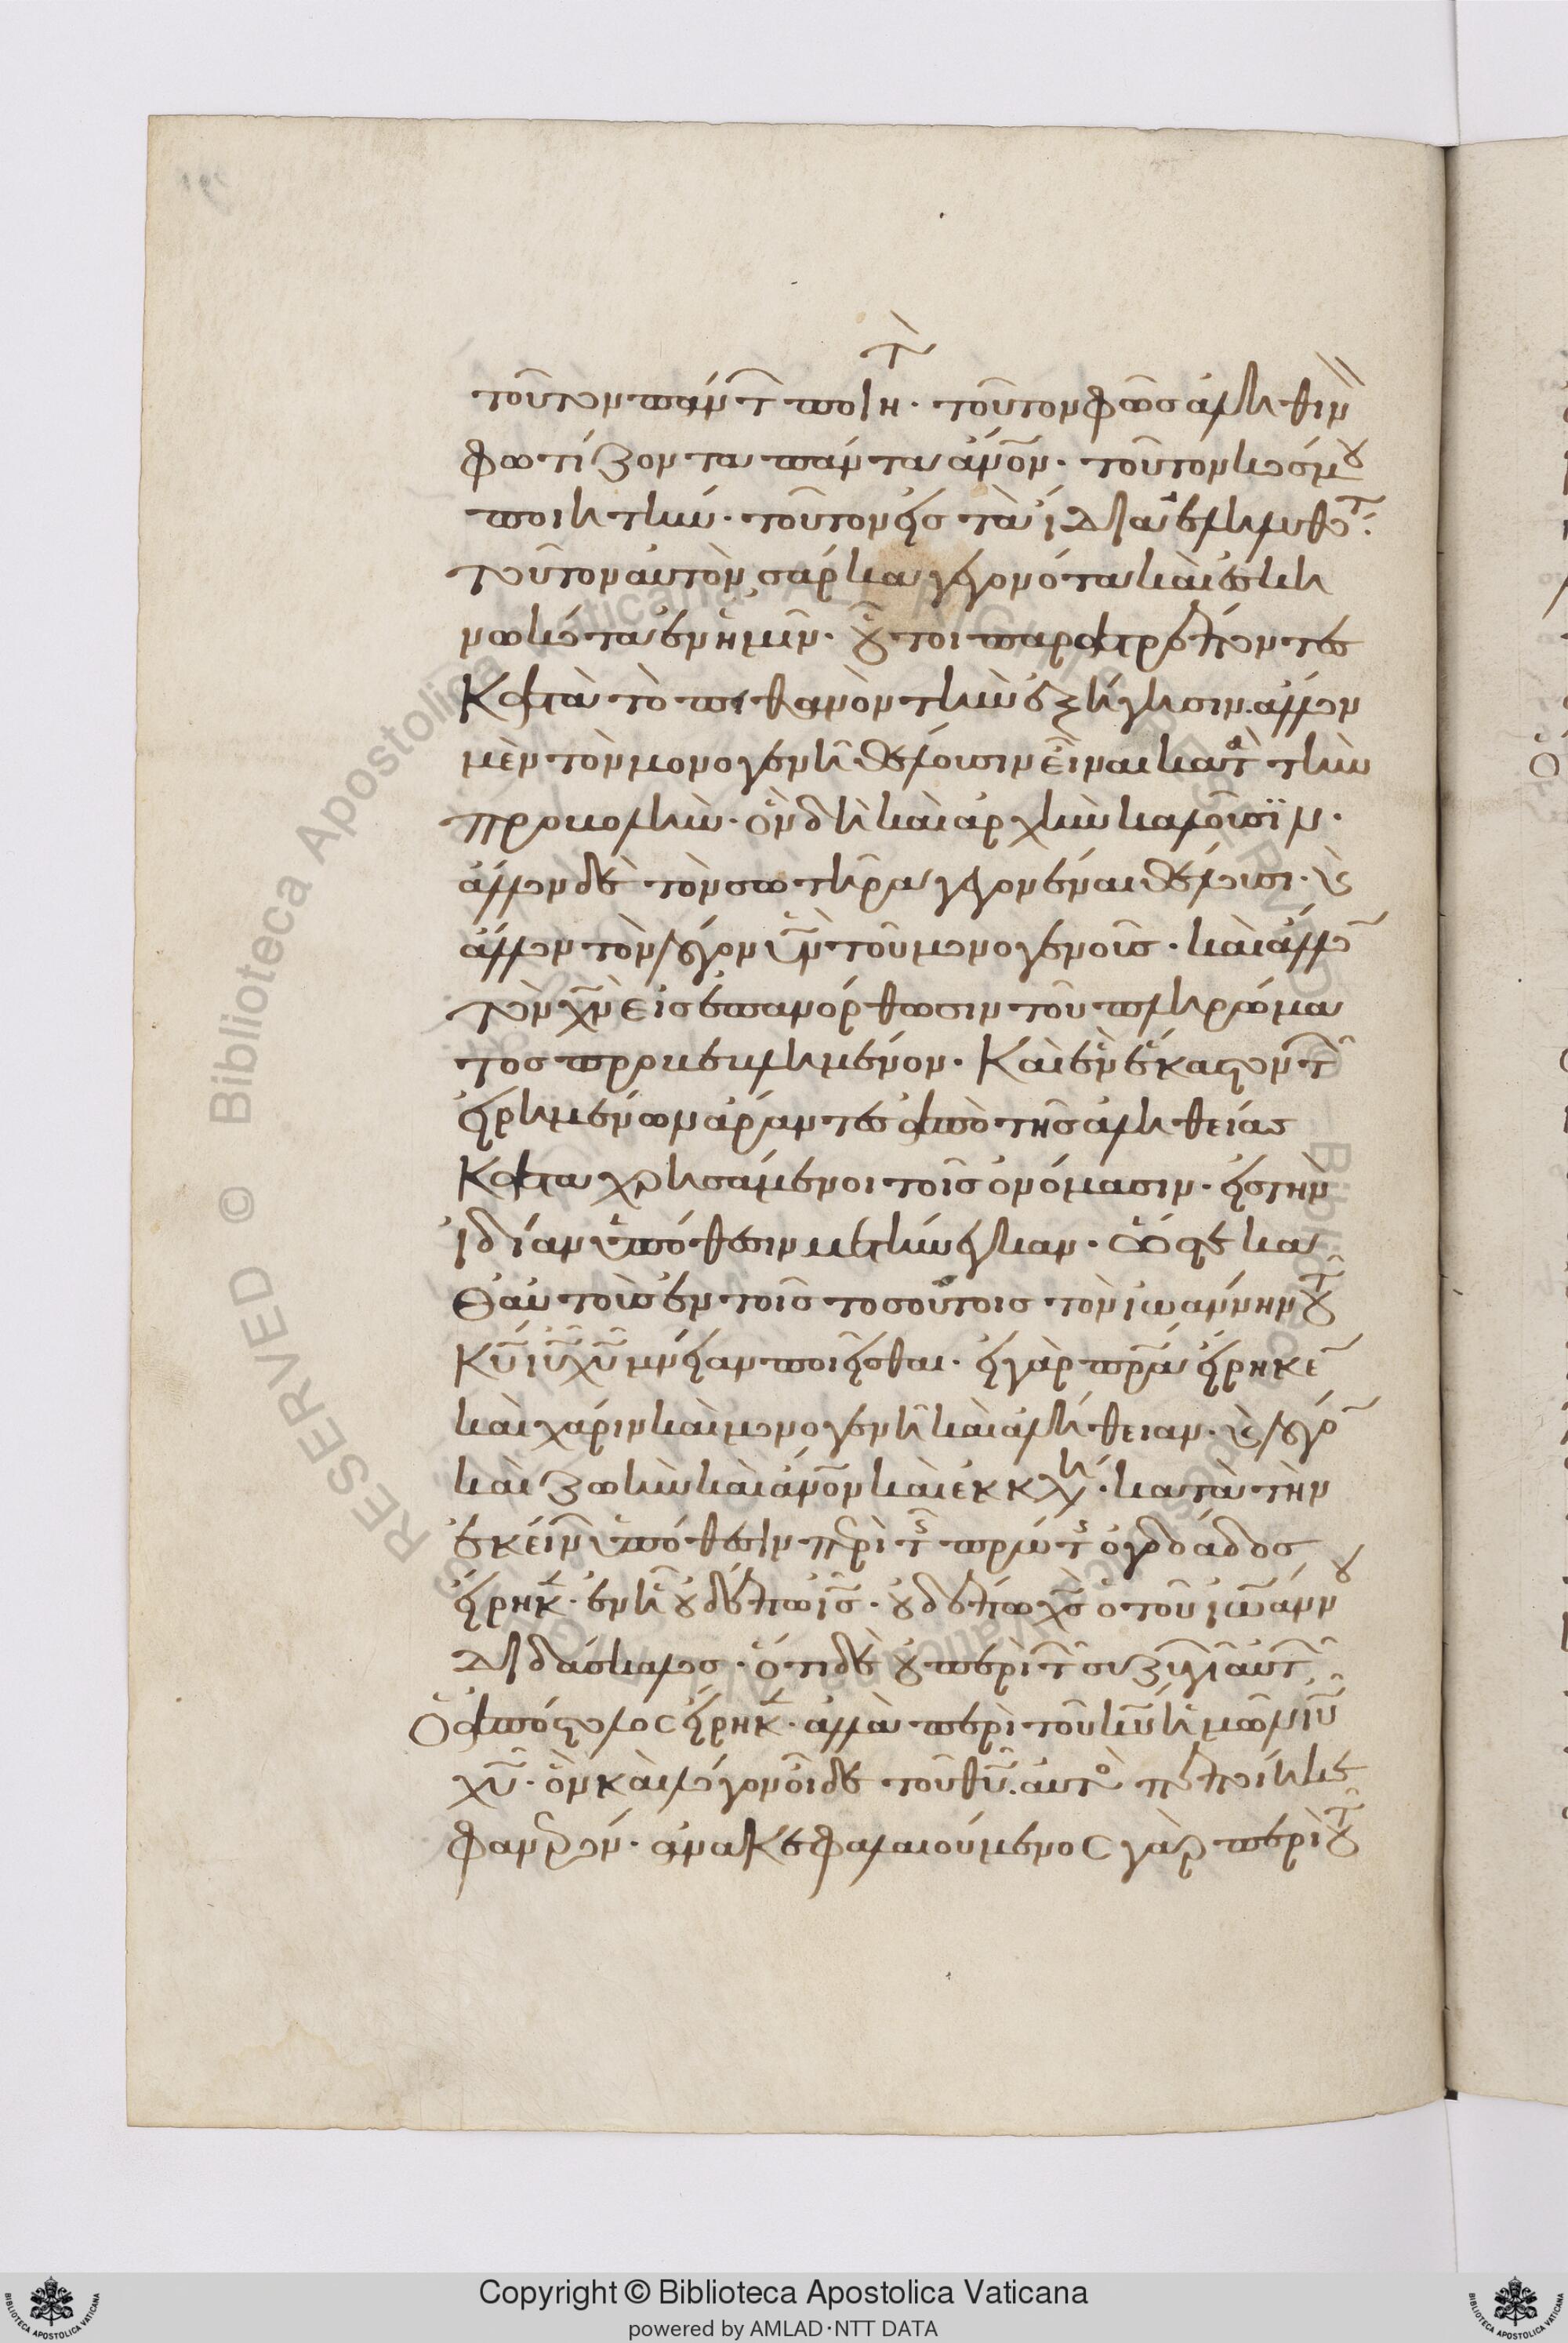 τοῦτον πάντ ποιη τ̀· τοῦτον φῶσ ἀληθιν
φωτίζοντα πάντα ἀν̅ο̅ν· τοῦτον κόσμου
ποιητήν· τοῦτον εἰσ τὰ ἴδια ἐληλυθότ·
τοῦτον αὐτὸν σάρκα γεγονότα καὶ ἐσκη
νωκότα ἐν ἡμῖν· οὗτοι παρατρέποντες
κατὰ τὸ πιθανὸν τὴν ἐξήγησιν. ἄλλον
μὲν τὸν μονογενῆ θέλουσιν εἶναι κατ τὴν
προβολὴν· ὃν δὴ καὶ ἀρχὴν καλοῦσϊν·
ἄλλον δὲ τὸν σωτῆρα γεγονέναι θέλουσι· ϗ
ἄλλον τὸν λόγον υ̅ν̅ τοῦ μονογενοῦσ· καὶ ἄλλο
τὸν χ̅ν̅ εἰσ ἐπανόρθωσιν τοῦ πληρώμα
τοσ προβεβλημένον· καὶ ἓν ἕκαστον τ
εἰρημένων ἄραντεσ ἀπὸ τῆσ ἀληθείας
καταχρησάμενοι τοῖσ ὀνόμασιν· εἰσ τὴν
ἰδίαν ὑπόθεσιν μετήνεγκαν· ὥστε κα
θ' αὐτοὺσ ἐν τοῖσ τοσούτοισ τὸν ἰωάννην τοῦ
κ̅υ̅ ι̅υ̅ χ̅υ̅ μνείαν ποιεῖσθαι· εἰ γὰρ π̅ρ̅α̅ εἴρηκε
καὶ χάριν καὶ μονογενῆ καὶ ἀλήθειαν· ϗ λόγο
καὶ ζωὴν καὶ ἀν̅ο̅ν καὶ ἐκκλη· κατὰ τὴν
ἐκείν ὑπόθεσιν περὶ τ πρώτ ὀγδοάδοσ
εἴρηκ· ἐν ἧ οὐδέπω ι̅σ̅· οὐδέπω χ̅σ̅ ὁ τοῦ ἰωάννου
διδάσκαλοσ· ὅτι δὲ οὐ περὶ τ συζυγι αὐτ
ὁ ἀπόστολοσ εἴρηκ· ἀλλὰ περὶ τοῦ κ̅υ̅ ἡμῶν ι̅υ̅
χ̅υ̅· ὃν καὶ λόγον οἶδε τοῦ θ̅υ̅. αὐτὸ πεποίηκε
φανερόν· ἀνακεφαλαιούμενοσ γὰρ περὶ τοῦ